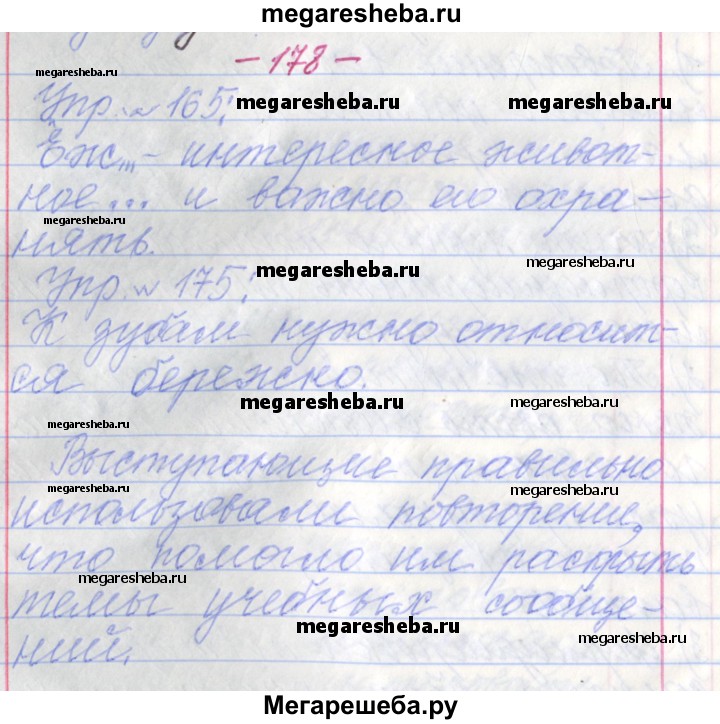 megaresheba.ru
- 178 -
megaresheba.ru
Упр. № 165:
megaresheba.ru megaresheba.ru
Ёж... - интересное живот-
ное... и важно его охра-
megaresheba.ru
нять.
megaresheba.ru megaresheba.ru
Упр. № 175:
К зубам нужно относит-
ся бережно.
megaresheba.ru megaresheba.ru
megaresheba.ru
Выступающие правильно
megaresheba.ru megaresheba.ru
использовали повторение,
что помогло им раскрыть
megaresheba.ru
темы учебных сообще-
megaresheba.ru megaresheba.ru
ний.
Мегарешеба.ру